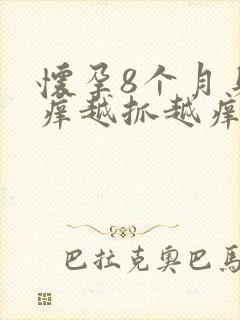 怀孕8个月身
痒越抓越痒
巴拉克奥巴馬